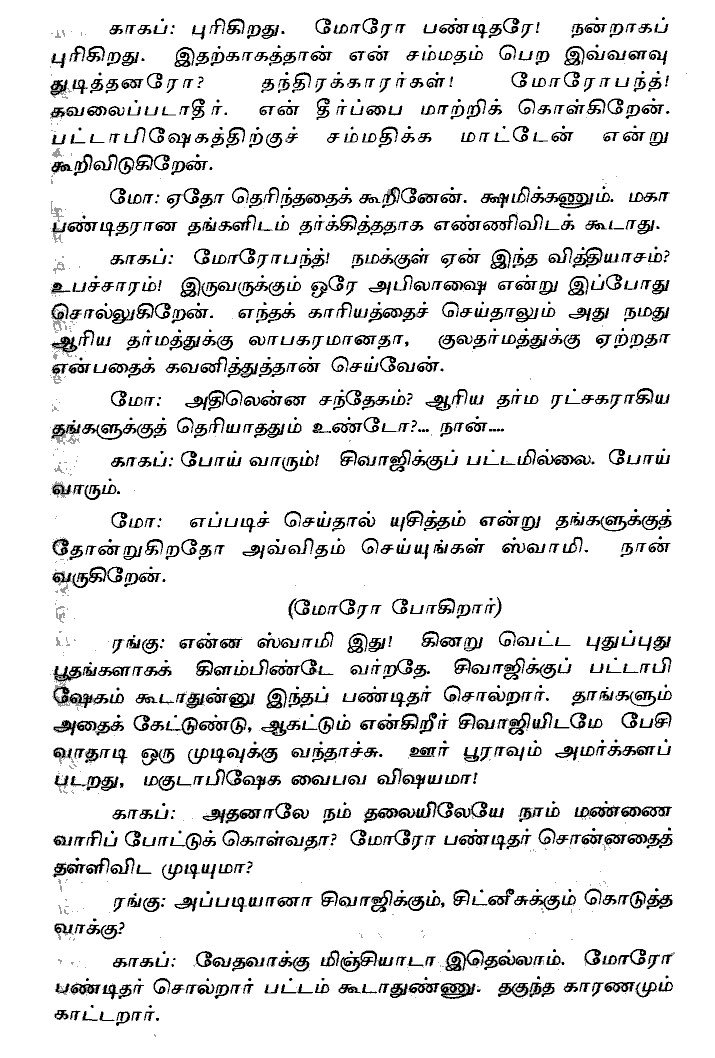 காகப்: புரிகிறது. மோரோ பண்டிதரே! நன்றாகப்
புரிகிறது. இதற்காகத்தான் என் சம்மதம் பெற இவ்வளவு
துடித்தனரோ? தந்திரக்காரர்கள்! மோரோபந்த்!
கவலைப்படாதீர். என் தீர்ப்பை மாற்றிக் கொள்கிறேன்.
பட்டாபிஷேகத்திற்குச் சம்மதிக்க மாட்டேன் என்று
கூறிவிடுகிறேன்.
மோ: ஏதோ தெரிந்ததைக் கூறினேன். க்ஷமிக்கணும். மகா
பண்டிதரான தங்களிடம் தர்க்கித்ததாக எண்ணிவிடக் கூடாது.
காகப்: மோரோபந்த்! நமக்குள் ஏன் இந்த வித்தியாசம்?
உபச்சாரம்! இருவருக்கும் ஒரே அபிலாஷை என்று இப்போது
சொல்லுகிறேன். எந்தக் காரியத்தைச் செய்தாலும் அது நமது
ஆரிய தர்மத்துக்கு லாபகரமானதா, குலதர்மத்துக்கு ஏற்றதா
என்பதைக் கவனித்துத்தான் செய்வேன்.
மோ: அதிலென்ன சந்தேகம்? ஆரிய தர்ம ரட்சகராகிய
தங்களுக்குத் தெரியாததும் உண்டோ?... நான்....
காகப்: போய் வாரும்! சிவாஜிக்குப் பட்டமில்லை. போய்
வாரும்.
மோ: எப்படிச் செய்தால் யுசித்தம் என்று தங்களுக்குத்
தோன்றுகிறதோ அவ்விதம் செய்யுங்கள் ஸ்வாமி. நான்
வருகிறேன்.
(மோரோ போகிறார்)
ரங்கு: என்ன ஸ்வாமி இது! கினறு வெட்ட புதுப்புது
பூதங்களாகக் கிளம்பிண்டே வர்றதே. சிவாஜிக்குப் பட்டாபி
ஷேகம் கூடாதுன்னு இந்தப் பண்டிதர் சொல்றார். தாங்களும்
அதைக் கேட்டுண்டு, ஆகட்டும் என்கிறீர் சிவாஜியிடமே பேசி
வாதாடி ஒரு முடிவுக்கு வந்தாச்சு. ஊர் பூராவும் அமர்க்களப்
படறது, மகுடாபிஷேக வைபவ விஷயமா!
காகப்: அதனாலே நம் தலையிலேயே நாம் மண்ணை
வாரிப் போட்டுக் கொள்வதா? மோரோ பண்டிதர் சொன்னதைத்
தள்ளிவிட முடியுமா?
ரங்கு: அப்படியானா சிவாஜிக்கும், சிட்னீசுக்கும் கொடுத்த
வாக்கு?
காகப்: வேதவாக்கு மிஞ்சியாடா இதெல்லாம். மோரோ
பண்டிதர் சொல்றார் பட்டம் கூடாதுண்ணு. தகுந்த காரணமும்
காட்டறார்.